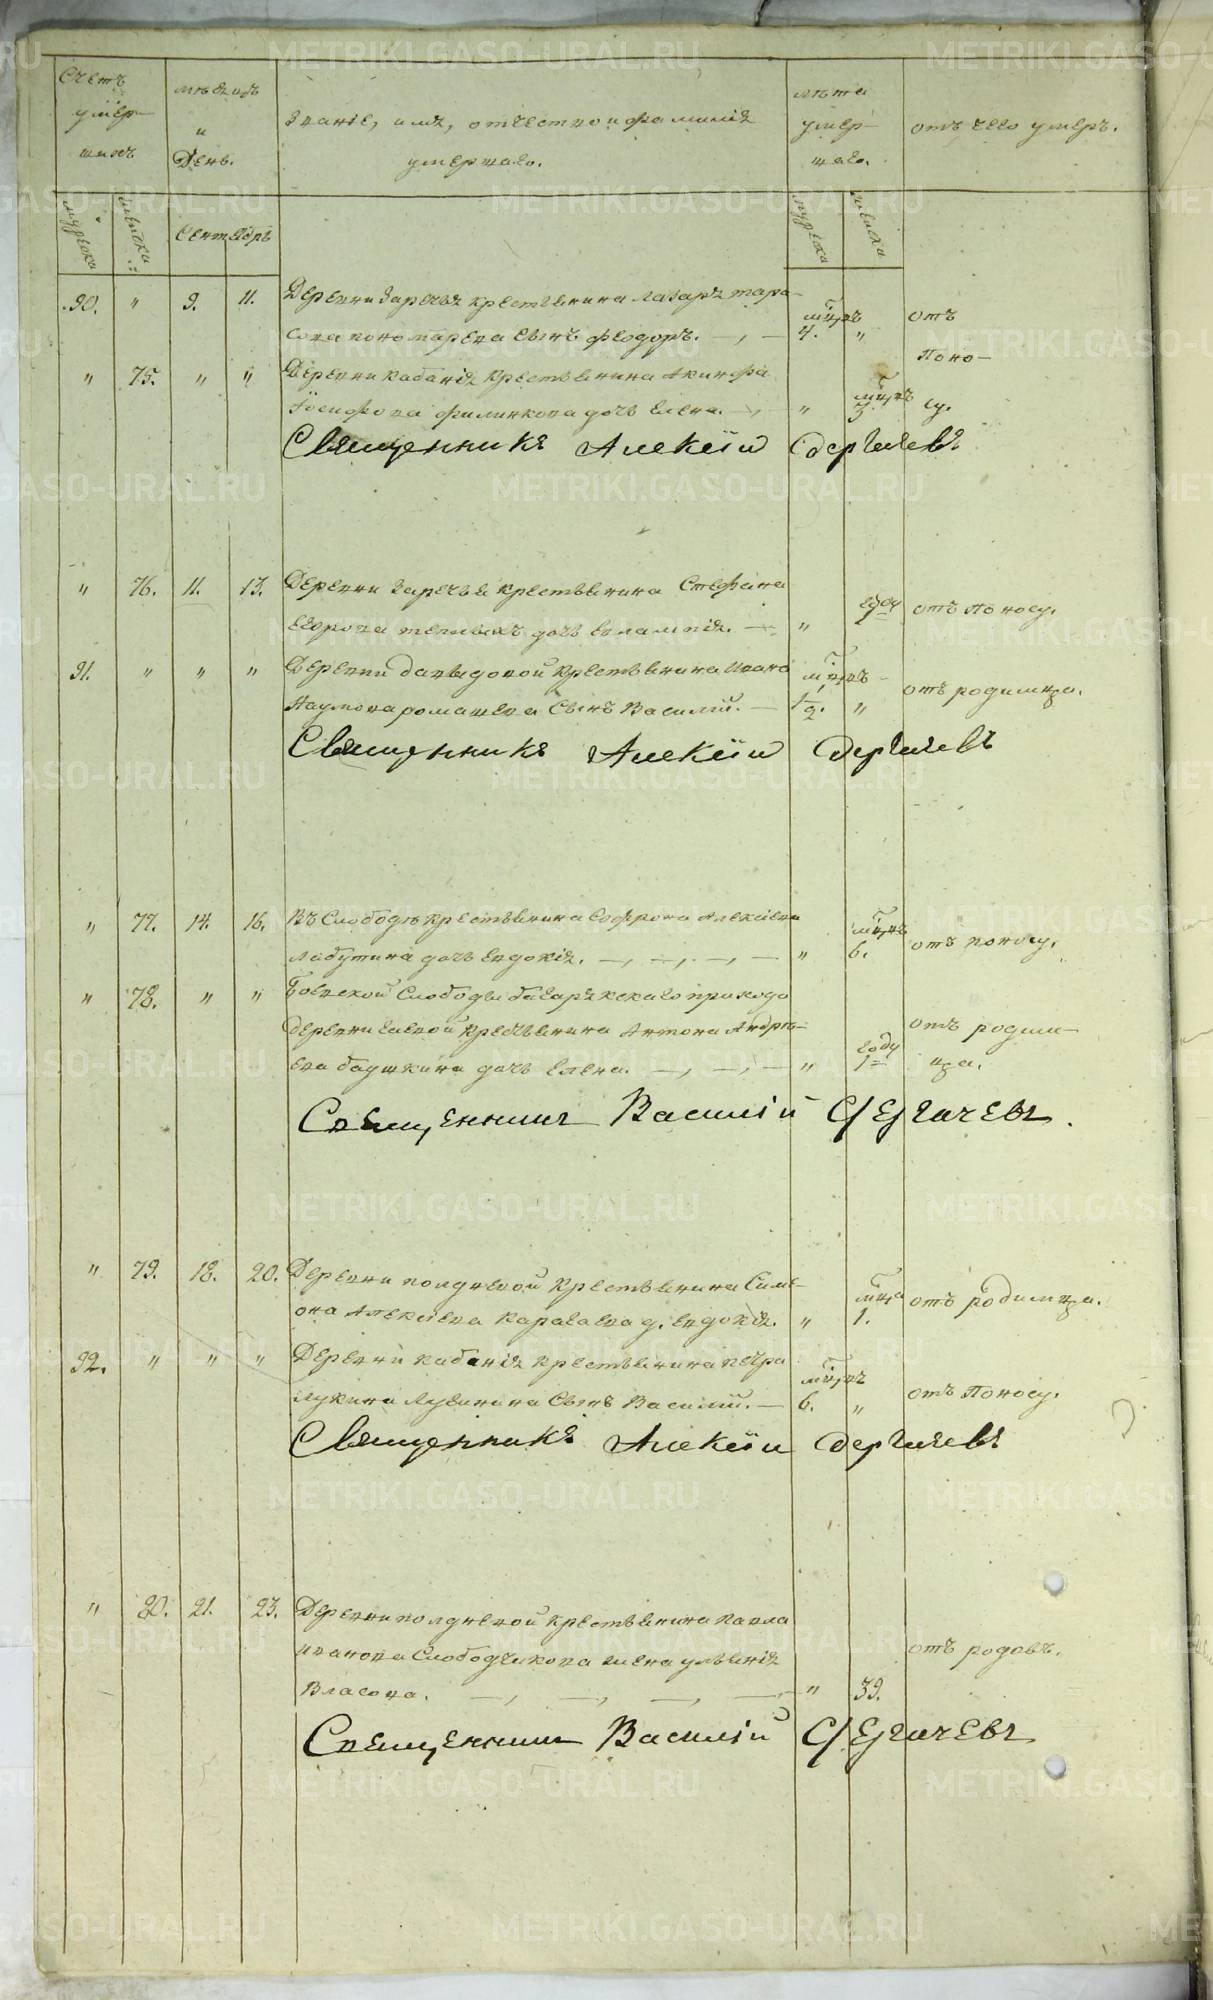 Счетъ умер- шихъ
мѣсяцъ и День.
Званіе, имя, отчество и фамилія умершаго.
лѣта умер- шаго.
отъ чего умеръ.
мужска
женска
Сентябрь
мужска
женска
90. " 9. 11. Деревни Заречья крестьянина Лазаря тара-
сова пономарева сынъ феодоръ. мцовъ 4. " отъ
" 75. " " Деревни кабанья крестьянина Акинфа Поно-
Іосифова филинкова дочь Елена. " мцовъ 3. су.
Священникъ Алексій Дергачевъ
" 76. 11. 13. Деревни Заречья крестьянина Стефана
Егорова теплыхъ дочь евлампія. " году отъ поносу.
91. " " " Деревни давыдовой крестьянина Ивана
Наумова ромашева Сынъ Василій. мцовъ 1 1/2. " отъ родимца.
Священникъ Алексій Дергачевъ
" 77. 14. 16. Въ Слободѣ крестьянина Софрона Алексіева
лабутина дочь евдокія. " мцовъ 6. отъ поносу.
" 78. " " Боевской Слободы багарякскаго прихода
деревни гаевой крестьянина Антона Андрѣ-
ева баушкина дочь Елена. " году 1 отъ родим-
ца.
Священникъ Василій Дергачевъ.
" 79. 18. 20. Деревни полдневой крестьянина Симе-
она Алексіева Караваева д. евдокія. " мца 1. отъ родимца.
92. " " " Деревни кабанья крестьянина петра
лукина Лугинина Сынъ Василій. мцовъ 6. " отъ Поносу.
Священникъ Алексій Дергачевъ
" 80. 21. 23. Деревни полдневой крестьянина павла
иванова Слободчикова жена ульянія
Власова. " 39. отъ родовъ.
Священникъ Василій Дергачевъ
METRIKI.GASO-URAL.RU